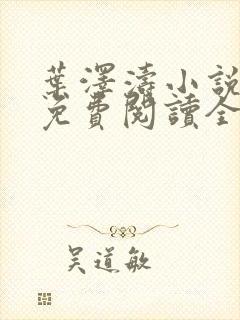 葉澤濤小說
免費閱讀全
吳道敏